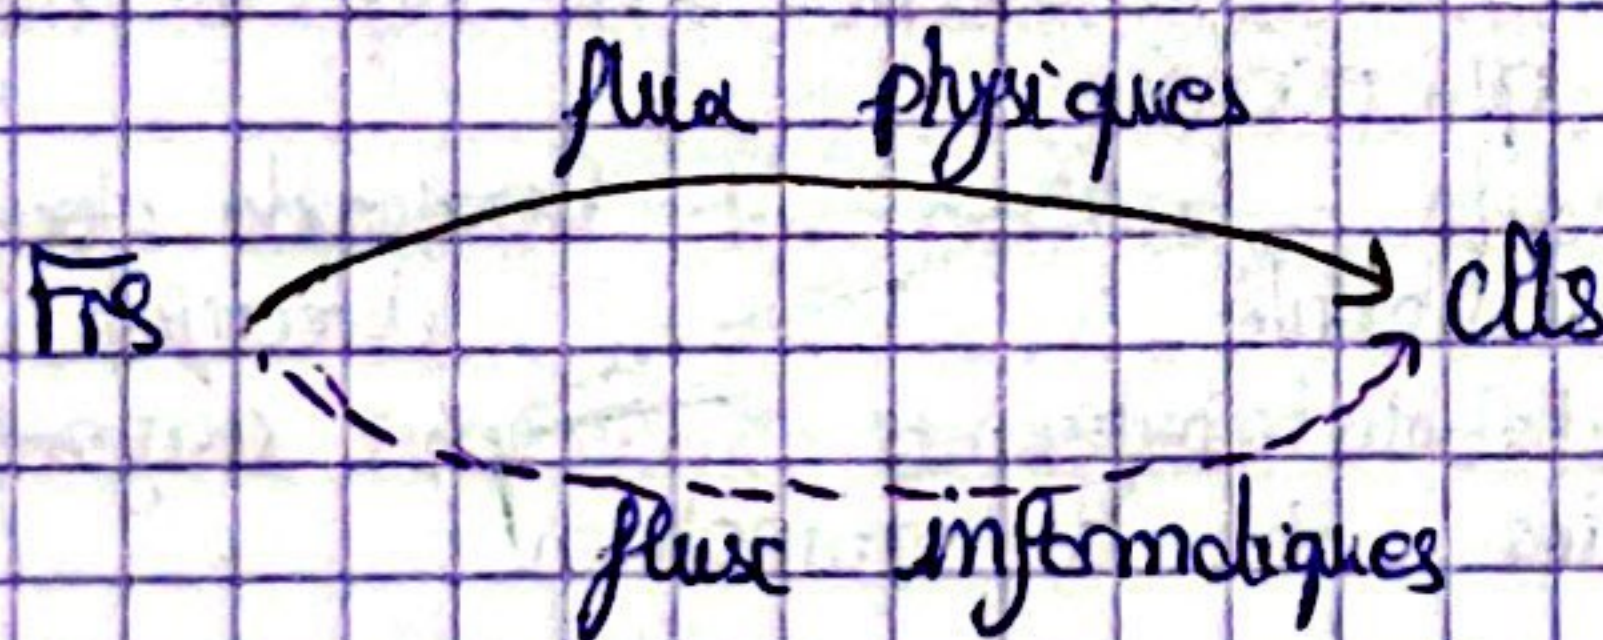 flux physiques
Frs clts
flux informatiques